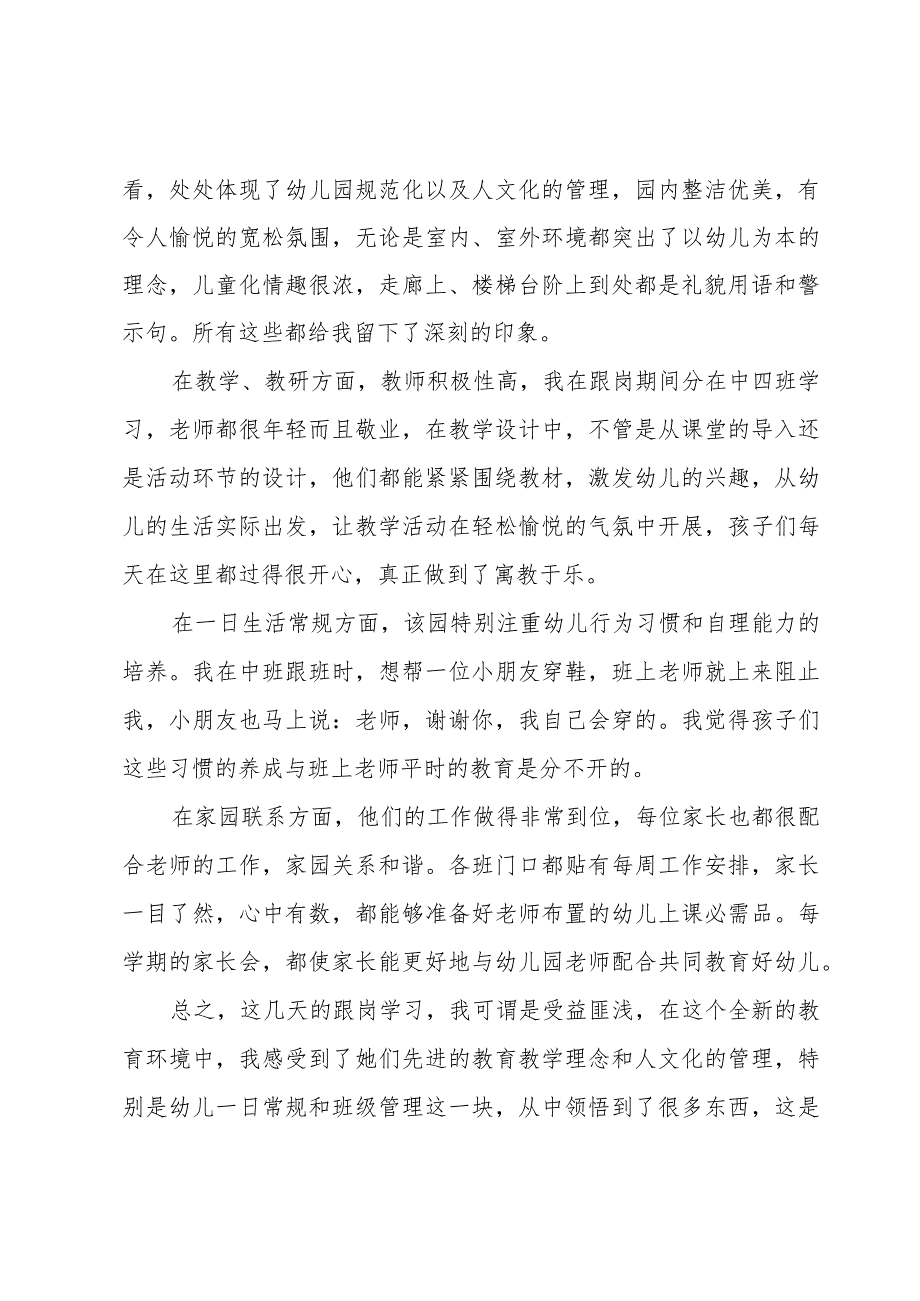 看，处处体现了幼儿园规范化以及人文化的管理，园内整洁优美，有
令人愉悦的宽松氛围，无论是室内、室外环境都突出了以幼儿为本的
理念，儿童化情趣很浓，走廊上、楼梯台阶上到处都是礼貌用语和警
示句。所有这些都给我留下了深刻的印象。
在教学、教研方面，教师积极性高，我在跟岗期间分在中四班学
习，老师都很年轻而且敬业，在教学设计中，不管是从课堂的导入还
是活动环节的设计，他们都能紧紧围绕教材，激发幼儿的兴趣，从幼
儿的生活实际出发，让教学活动在轻松愉悦的气氛中开展，孩子们每
天在这里都过得很开心，真正做到了寓教于乐。
在一日生活常规方面，该园特别注重幼儿行为习惯和自理能力的
培养。我在中班跟班时，想帮一位小朋友穿鞋，班上老师就上来阻止
我，小朋友也马上说：老师，谢谢你，我自己会穿的。我觉得孩子们
这些习惯的养成与班上老师平时的教育是分不开的。
在家园联系方面，他们的工作做得非常到位，每位家长也都很配
合老师的工作，家园关系和谐。各班门口都贴有每周工作安排，家长
一目了然，心中有数，都能够准备好老师布置的幼儿上课必需品。每
学期的家长会，都使家长能更好地与幼儿园老师配合共同教育好幼儿。
总之，这几天的跟岗学习，我可谓是受益匪浅，在这个全新的教
育环境中，我感受到了她们先进的教育教学理念和人文化的管理，特
别是幼儿一日常规和班级管理这一块，从中领悟到了很多东西，这是